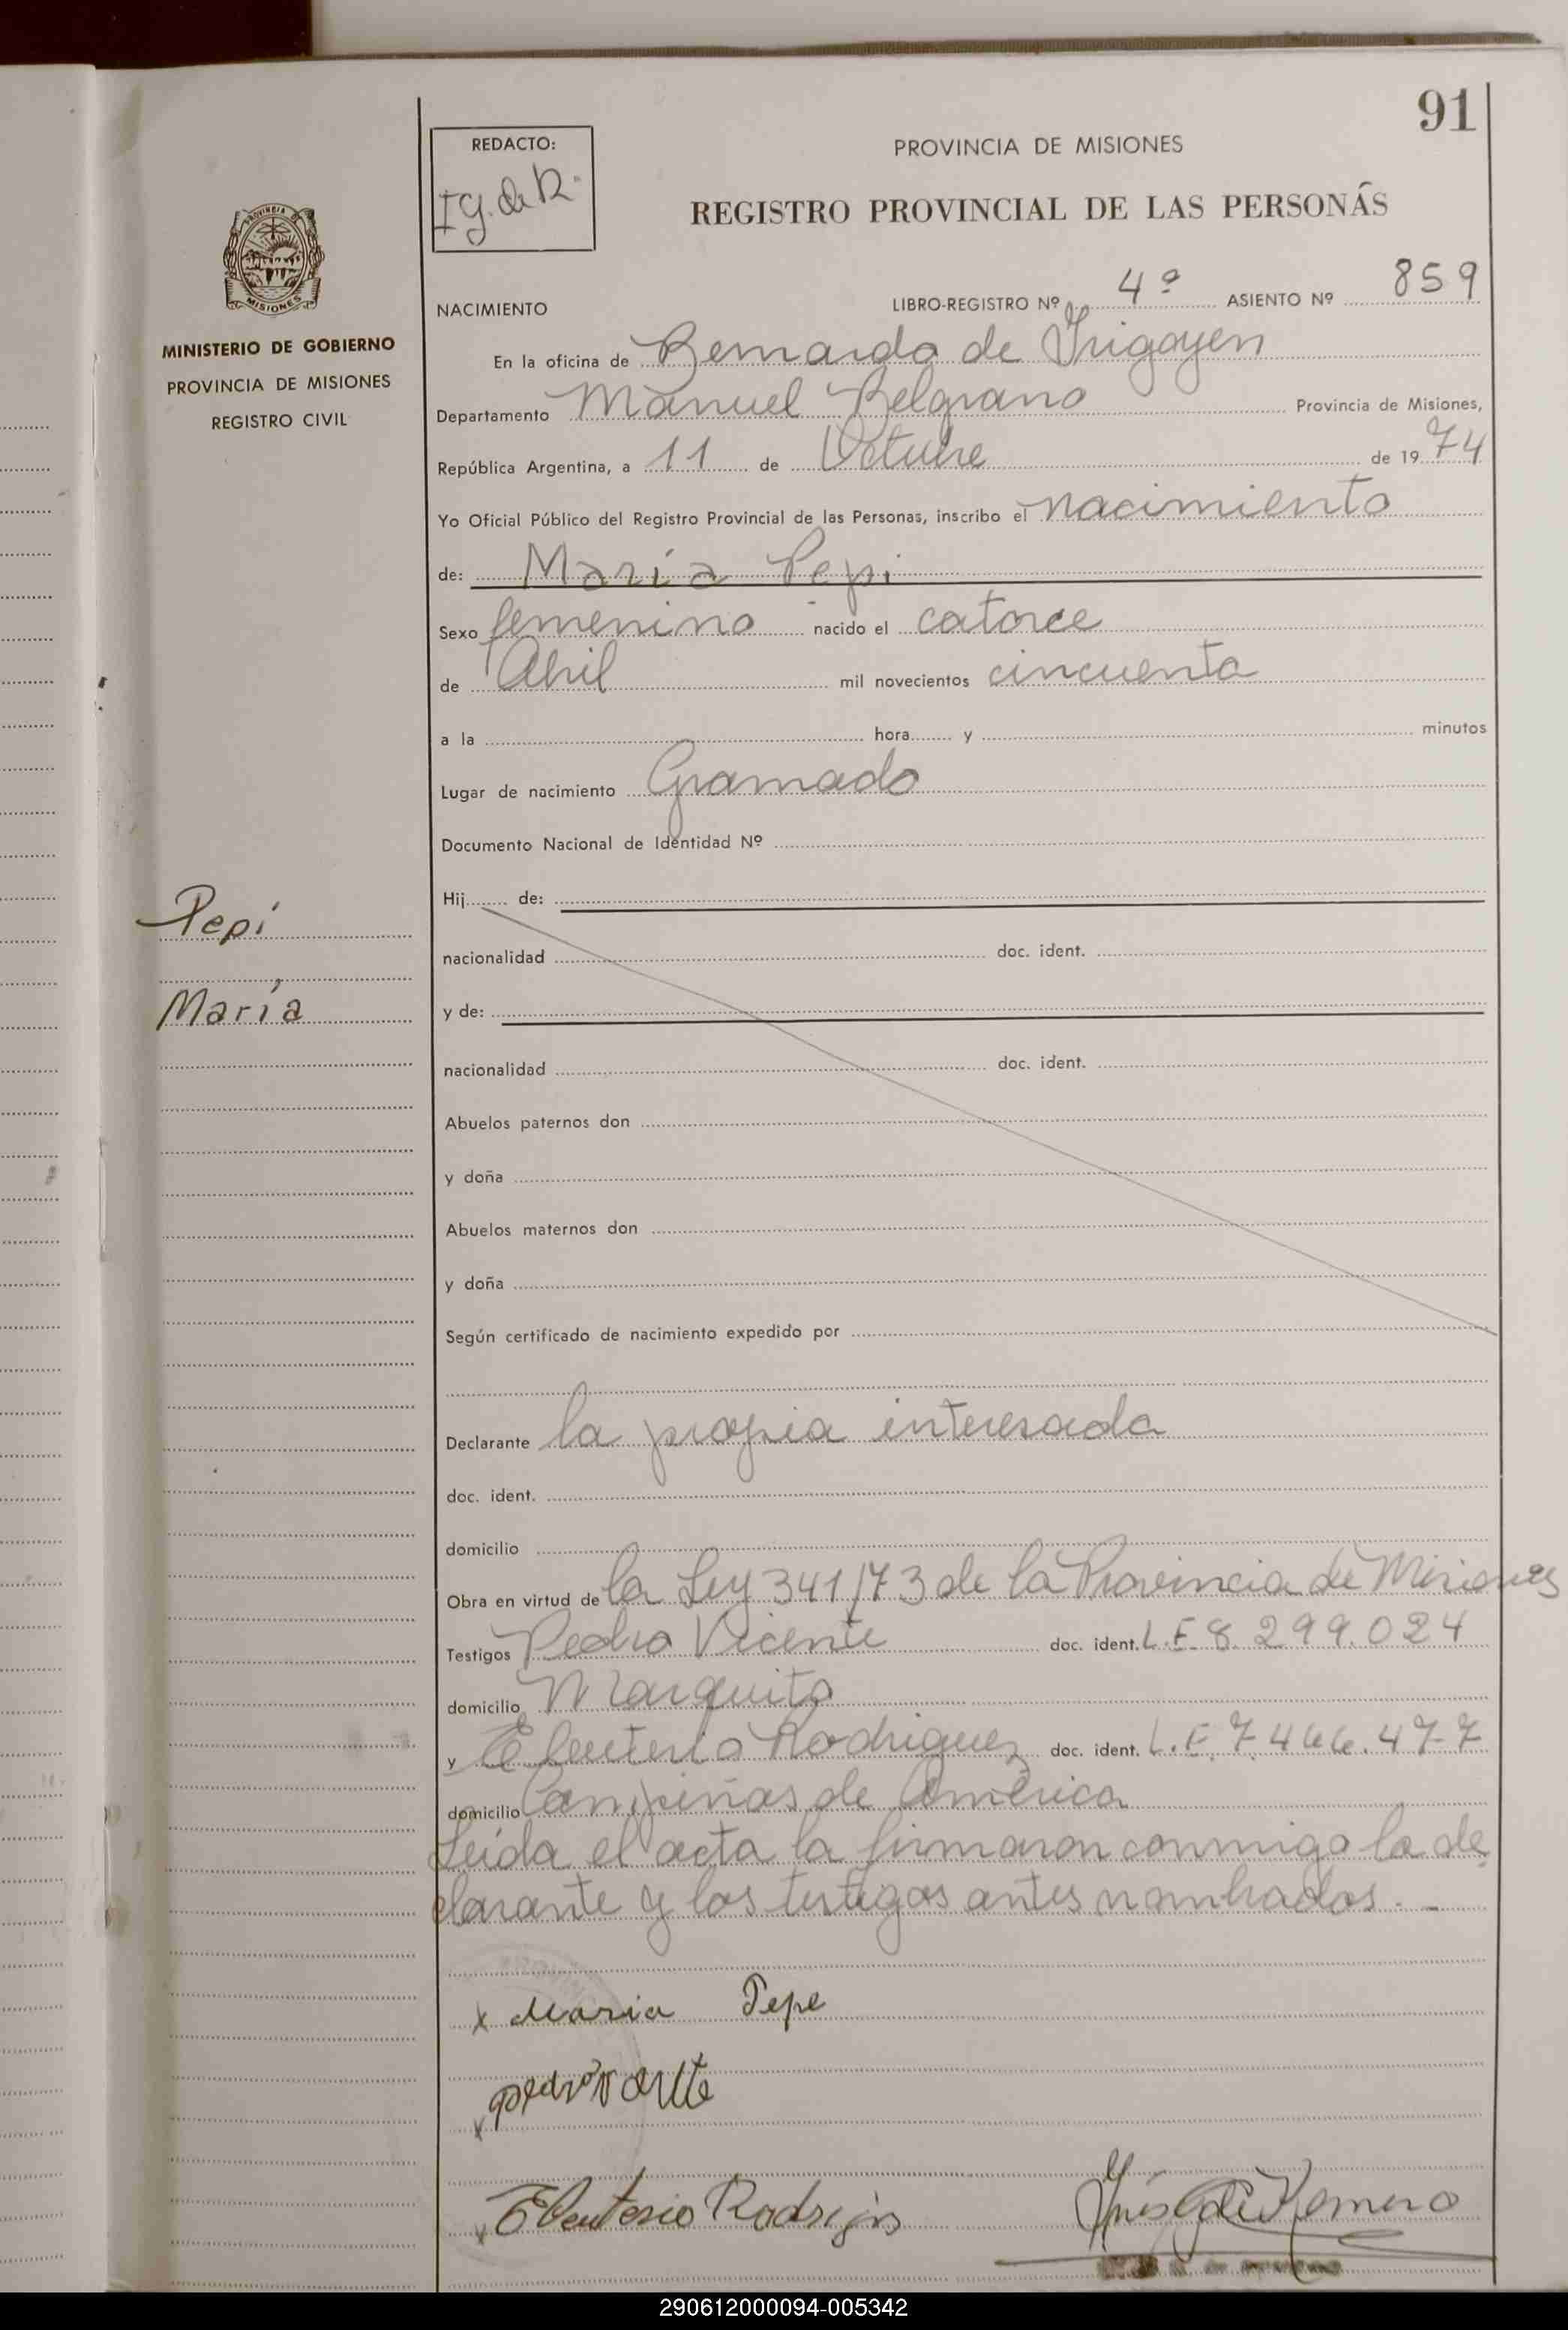 91
REDACTO:
Ig. de R.
PROVINCIA DE MISIONES
REGISTRO PROVINCIAL DE LAS PERSONAS
MINISTERIO DE GOBIERNO
PROVINCIA DE MISIONES
REGISTRO CIVIL
NACIMIENTO LIBRO-REGISTRO Nº 4º ASIENTO Nº 859
En la oficina de Bernardo de Irigoyen
Departamento Manuel Belgrano Provincia de Misiones,
República Argentina, a 11 de Octubre de 1974
Yo Oficial Público del Registro Provincial de las Personas, inscribo el nacimiento
de: María Pepi
Sexo femenino nacido el catorce
de Abril mil novecientos cincuenta
a la hora y minutos
Lugar de nacimiento Gramado
Documento Nacional de Identidad Nº
Hij de:
Pepi
nacionalidad doc. ident.
María
y de:
nacionalidad doc. ident.
Abuelos paternos don
y doña
Abuelos maternos don
y doña
Según certificado de nacimiento expedido por
Declarante la propia interesada
doc. ident.
domicilio
Obra en virtud de la Ley 341/73 de la Provincia de Misiones
Testigos Pedro Vicente doc. ident. L.E 8.299.024
domicilio
y Eleuterio Rodriguez doc. ident. L.E. 7.466.477
domicilio Campiñas de América
Leída el acta la firmaron conmigo la de
clarante y los testigos antes nombrados.-
x Maria Pepe
x pedro
x Eleuterio Rodrigis
Inés G de Romero
290612000094-005342